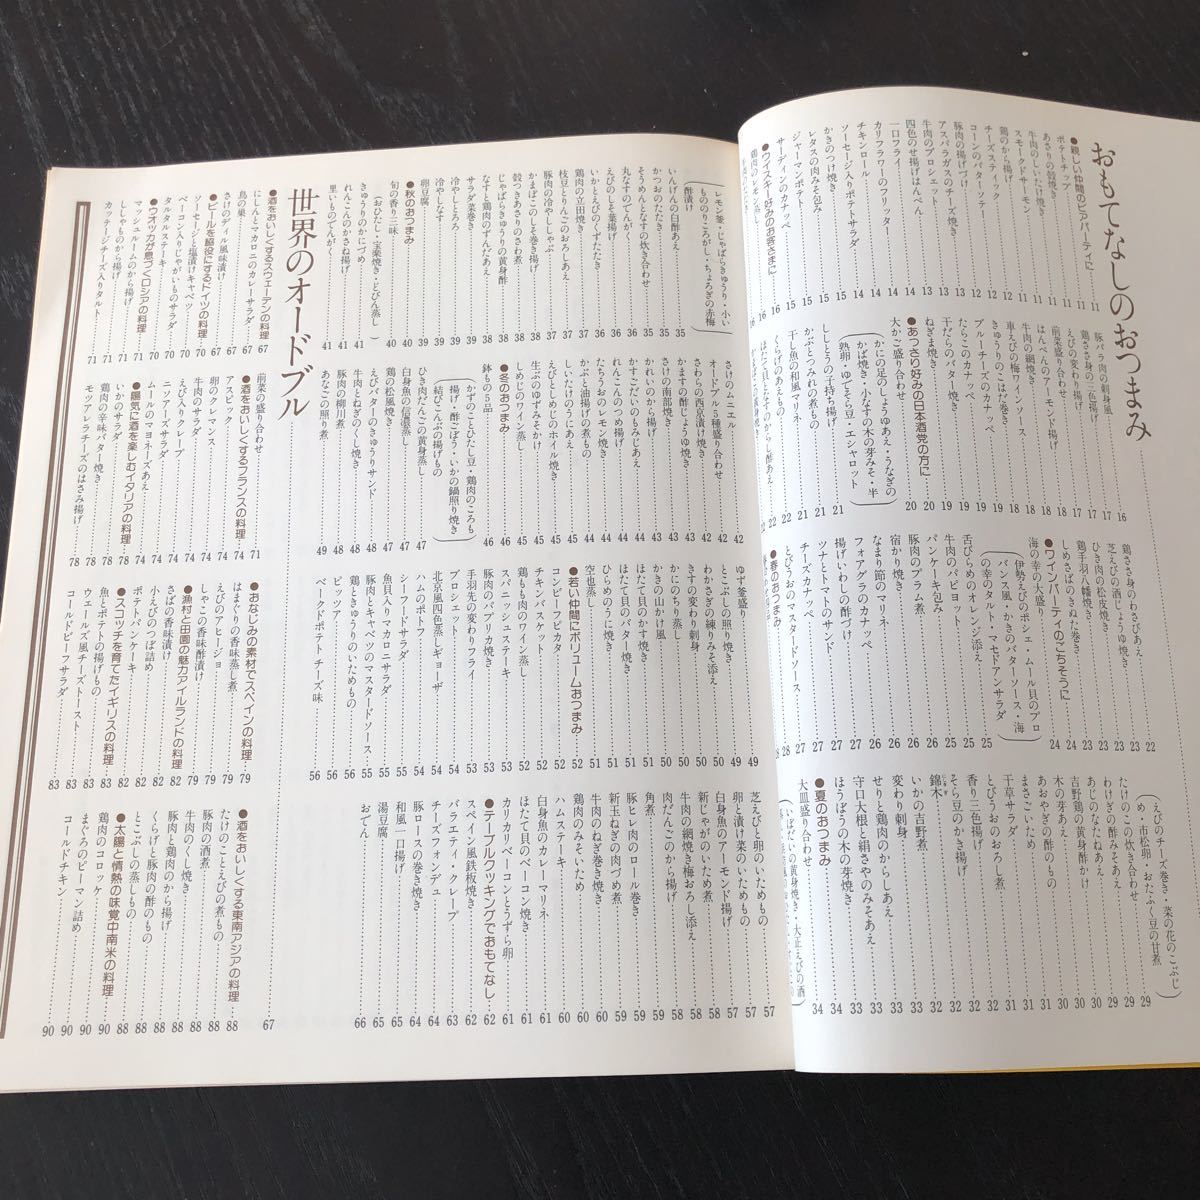 おもてなしのおつまみ
●親しい仲間のビアパーティに
ポテトチップ 11
あさりの殻焼き 11
牛肉のしいたけ焼き 11
スモークドサーモン 11
鶏のから揚げ 12
チーズスティック 12
コーンのバターソテ 12
豚肉の揚げづけ 12
アスパラガスのチーズ焼き 13
牛肉のブロシェット 13
四色のせ揚げはんぺん 14
一口フライ 14
カリフラワーのフリッター 14
チキンロール 14
ソーセージ入りポテトサラダ 14
かきのつけ焼き 15
レタスの肉みそ包み 15
ジャーマンポテト 15
サーディンのカナッペ 15
●ウイスキー好みのお客さまに
鶏肉のレモン蒸し 16
豚バラ肉の刺身風 16
鶏ささ身の二色揚げ 17
えびの変わり揚げ 17
前菜盛り合わせ 17
はんぺんのアーモンド揚げ 18
牛肉の網焼き 18
車えびの梅ワインソース 18
きゅうりのこはだ巻き 18
ブルーチーズのカナッペ 19
たらこのカナッペ 19
干だらのバター焼き 19
ねぎま焼き 20
●あっさり好みの日本酒党の方に 20
大かご盛り合わせ
(かにの足のしょうゆあえ・うなぎの
かば焼き・小なすの木の芽みそ・半
熟卵・ゆでそら豆・エシャロット)
ししとうの子持ち揚げ 21
かぶとつみれの煮もの 21
干し魚の和風マリネ 22
くらげのあえもの 22
はたて貝となすのからし酢あえ 22
鶏ささ身のわさびあえ 22
芝えびの酒じょうゆ焼き 23
ひき肉の松皮焼き 23
鶏手羽八幡焼き 23
しめさばのきぬた巻き 24
●ワインパーティのごちそうに 24
海の幸の大盛り
(伊勢えびのポシェ・ムール貝のプロ
バンス風・かきのバターソース・海
の幸のタルト・マセドアンサラダ)
舌びらめのオレンジ添え 25
牛肉のパピヨット 25
パンケーキ包み 26
豚肉のプラム煮 26
宿かり焼き 26
なまり節のマリネ 26
フォアグラのカナッペ 27
揚げいわしの酢づけ 27
ツナとトマトのサンド 27
チーズカナッペ 27
とびうおのマスタードソース 28
●春のおつまみ 28
(えびのチーズ巻き・菜の花のこぶじ
め・市松卵・おたふく豆の甘煮)
たけのこの炊き合わせ 29
わけぎの酢みそあえ 29
あじのなたねあえ 30
吉野鶏の黄身酢かけ 30
木の芽あえ 30
あおやぎの酢のもの 30
まさごいため 31
干草サラダ 31
とびうおのおろしあえ 31
香り三色揚げ 32
そら豆のかき揚げ 32
錦木 32
いかの吉野煮 32
変わり刺身 33
せりと鶏肉のからしあえ 33
守口大根と絹さやのみそあえ 33
ほうぼうの木の芽焼き 34
●夏のおつまみ 34
大皿盛り合わせ
レモン釜・じゃばらきゅうり・小い
もののりころがし・ちょろぎの赤梅
酢漬け
いんげんの白酢あえ 35
かつおのたたき 35
そうめんとなすの炊き合わせ 36
丸なすのでんがく 36
えびのしそ葉揚げ 36
いかとえびのくずたたき 36
鶏肉の立田焼き 37
枝豆とりんごのおろしあえ 37
豚肉の冷やししゃぶ 37
かまぼこのしそ巻き揚げ 38
殻つきあさりのさわ煮 38
じゃばらきゅうりの黄身酢 38
なすと鶏肉のずんだあえ 38
サラダ菜巻き 39
冷やしとろろ 39
冷やしなす 39
卵豆腐 39
●秋のおつまみ 40
旬の香り三味
(おひたし・宝楽焼き・どびん蒸し)
きゅうりのかにづめ 41
れんこんのかさね揚げ 41
里いものでんがく 41
さけのムニエル 42
オードブル5種盛り合わせ 42
さわらの西京漬け焼き 42
かますの酢じょうゆ焼き 42
さけの南部焼き 43
かれいのから揚げ 43
かますごだいのもみじあえ 43
れんこんのつめ揚げ 44
たちうおのレモン焼き 44
かぶと油揚げの煮もの 44
しいたけのうにあえ 44
えびとしめじのホイル焼き 45
生ぶのゆずみそかけ 45
しめじのワイン蒸し 46
●冬のおつまみ 46
鉢もの5品
(かずのことひたし豆・鶏肉のころも
揚げ・酢ごぼう・いかの鍋照り焼き
結びこんぶの揚げもの)
ひき肉だんごの黄身蒸し 47
白身魚の信濃蒸し 47
鶏の松風焼き 47
えびバターのきゅうりサンド 48
牛肉とねぎのくし焼き 48
豚肉の柳川煮 48
あなごの照り煮 49
ゆず釜盛り 49
とこぶしの照り焼き 49
わかさぎの練りみそ添え 50
きすの変わり刺身 50
かにのちり蒸し 50
かきの山かけ風 50
ほたて貝のおかす焼き 50
はたて貝のバター焼き 51
ひらめのうに焼き 51
空也蒸し 51
●若い仲間にボリュームおつまみ 52
コンビーフピカタ 52
チキンバスケット 52
鶏もも肉のワイン蒸し 53
スパニッシュステーキ 53
豚肉のパプリカ焼き 53
手羽先の変わりフライ 53
ブロシェット 54
北京風四色蒸しギョーザ 54
ハムのポトフ 54
シーフーズサラダ 54
魚貝入りマカロニサラダ 55
豚肉とキャベツのマスタードソース 55
鶏ときゅうりのいためもの 56
ピッツア 56
ベークドポテトチーズ味 56
芝えびと卵のいためもの 57
卵と漬け菜のいためもの 57
白身魚のアーモンド揚げ 57
新じゃがのミートソース煮 58
牛肉の網焼き梅おろし添え 58
肉だんごのから揚げ 58
角煮 58
豚ヒレ肉のロール巻き 59
新玉ねぎの肉づめ煮 59
牛肉のねぎ巻き焼き 59
鶏肉のみそいため 60
ハムステーキ 60
白身魚のカレーマリネ 61
はたて貝のベーコン焼き 61
カリカリベーコンとうずら卵 61
●テーブルクッキングでおもてなし 62
スペイン風鉄板焼き 62
バラエティ・クレープ 63
チーズフォンデュ 64
豚ロースの巻き焼き 64
和風一口揚げ 65
湯豆腐 65
おでん 66
世界のオードブル 67
●酒をおいしくするスウェーデンの料理 67
にしんとマカロニのカレーサラダ 67
鳥の巣 67
さけのディル風味漬け 67
●ビールを脇役にするドイツの料理 70
ソーセージと塩漬けキャベツ 70
ベーコン入りじゃがいものサラダ 70
タルタルステーキ 70
●ウオッカが息づくロシアの料理 70
マッシュルームのから揚げ 71
ししゃものから揚げ 71
カッテージチーズ入りタルト 71
前菜の盛り合わせ 71
●酒をおいしくするフランスの料理 74
アスピック 74
卵のタルマンス 74
牛肉のサラダ 74
えび入りクレープ 74
ニソアーズサラダ 74
ムールのマヨネーズあえ 74
●陽気に酒を楽しむイタリアの料理 78
いかの冷菜 78
鶏肉の辛味バター焼き 78
モツアレラチーズのはさみ揚げ 78
●おなじみの素材でスペインの料理 79
はまぐりの香味蒸し煮 79
えびのアヒージョ 79
しゃこの香味酢漬け 79
●漁村と田園の魅力アイルランドの料理 82
さばの香味漬け 82
小えびのつぼ詰め 82
ポテトパンケーキ 82
●スコッチを育てたイギリスの料理 83
魚とポテトの揚げもの 83
ウェールズ風チーズトースト 83
コールドビーフサラダ 83
●酒をおいしくする東南アジアの料理 88
たけのことえびの煮もの 88
豚肉の酒煮 88
牛肉のくし焼き 88
豚肉と鶏肉のから揚げ 88
くらげと豚肉の酢のもの 88
とこぶしの蒸しもの 88
●太陽と情熱の味覚中南米の料理 90
鶏肉のコロッケ 90
まぐろのピーマン詰め 90
コールドチキン 90